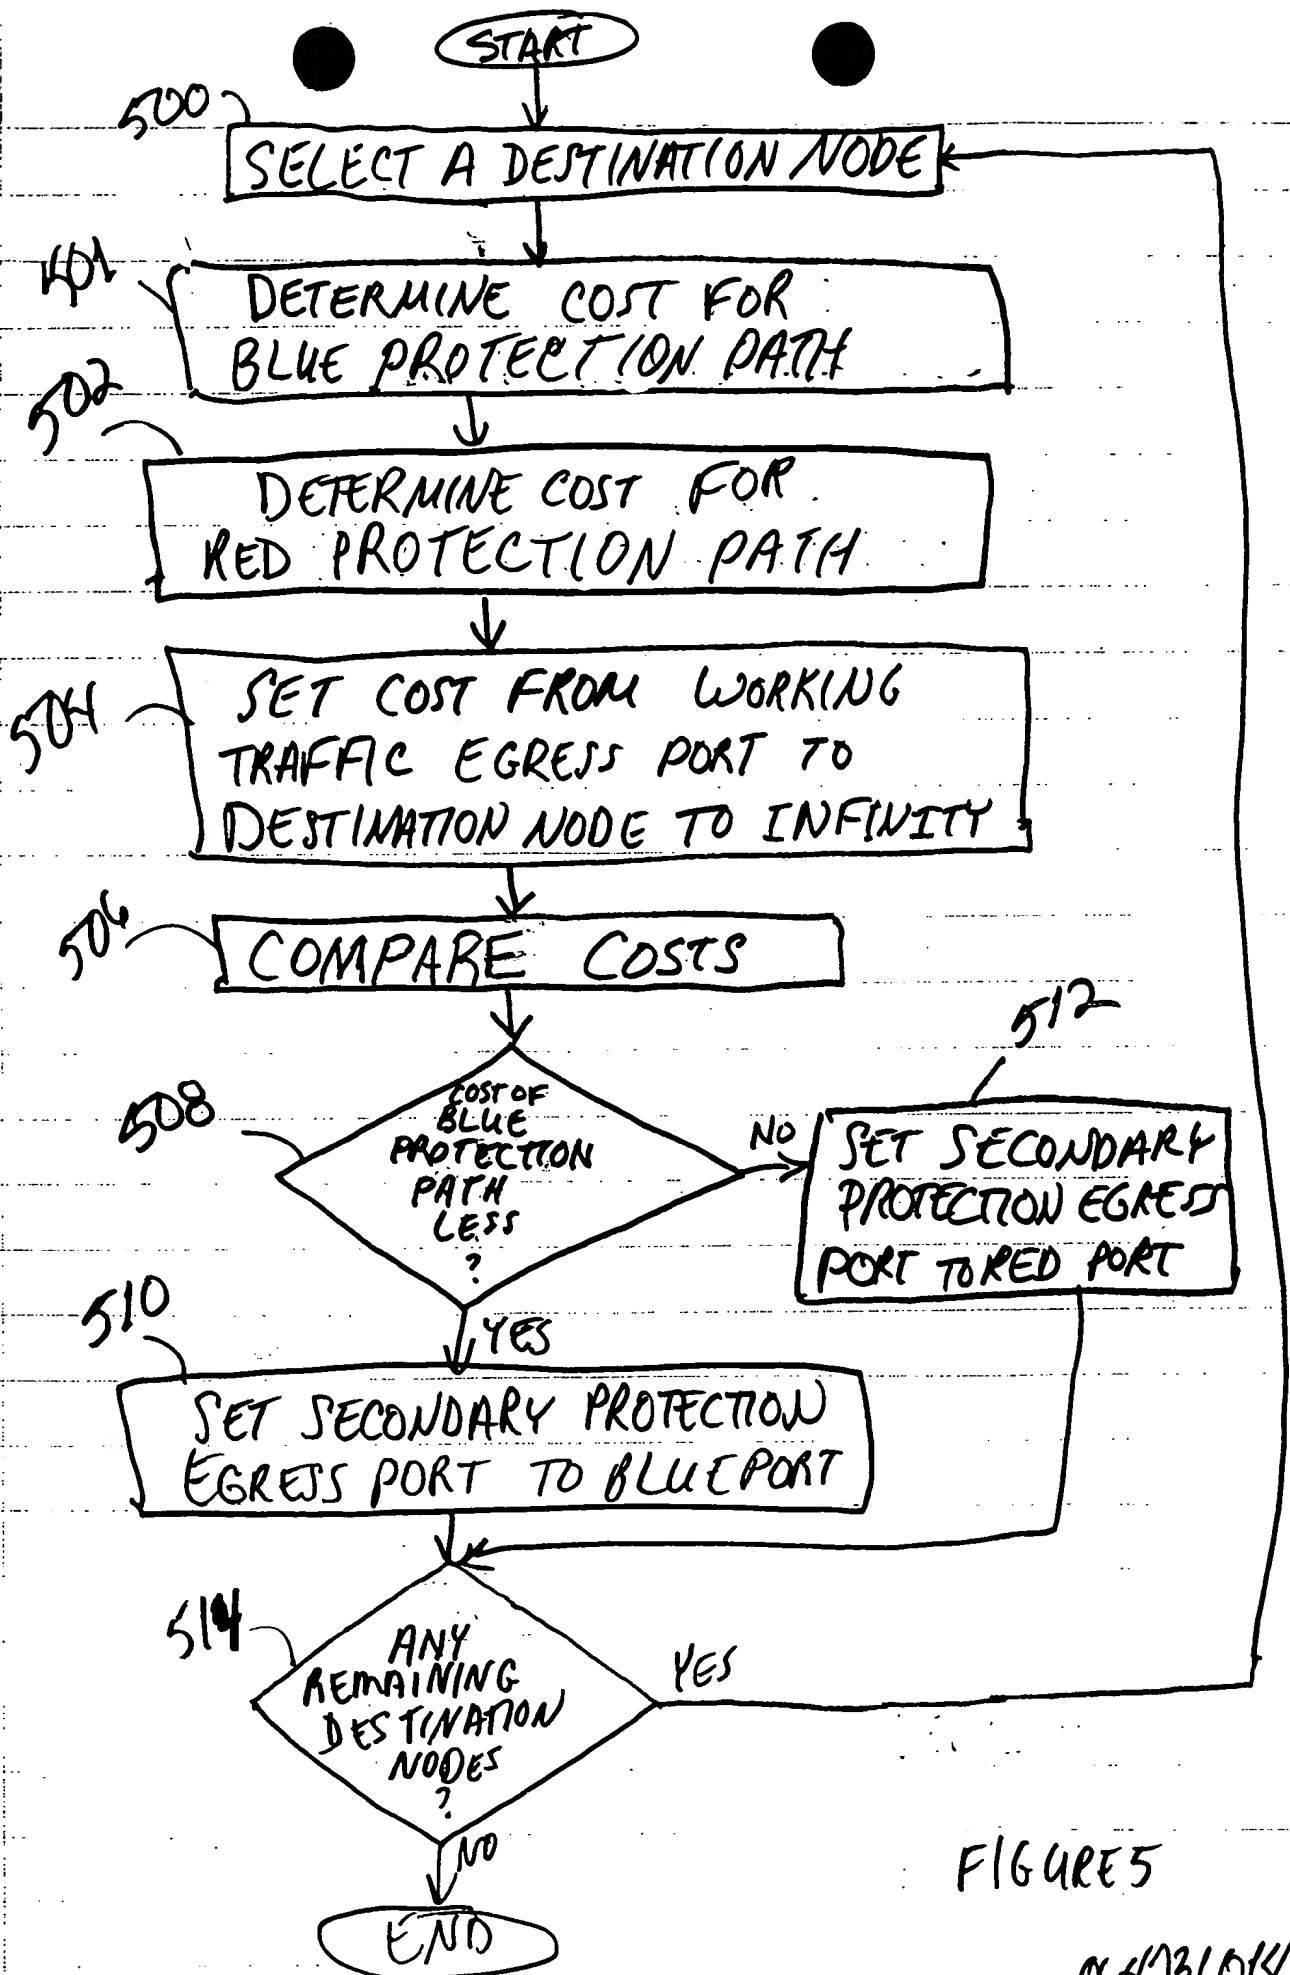 START
500
SELECT A DESTINATION NODE
401
DETERMINE COST FOR
BLUE PROTECTION PATH
502
DETERMINE COST FOR
RED PROTECTION PATH
504
SET COST FROM WORKING
TRAFFIC EGRESS PORT TO
DESTINATION NODE TO INFINITY
506
COMPARE COSTS
508
COST OF
BLUE
PROTECTION
PATH
LESS
?
NO
512
SET SECONDARY
PROTECTION EGRESS
PORT TO RED PORT
YES
510
SET SECONDARY PROTECTION
EGRESS PORT TO BLUE PORT
514
ANY
REMAINING
DESTINATION
NODES
?
YES
NO
END
FIGURE 5